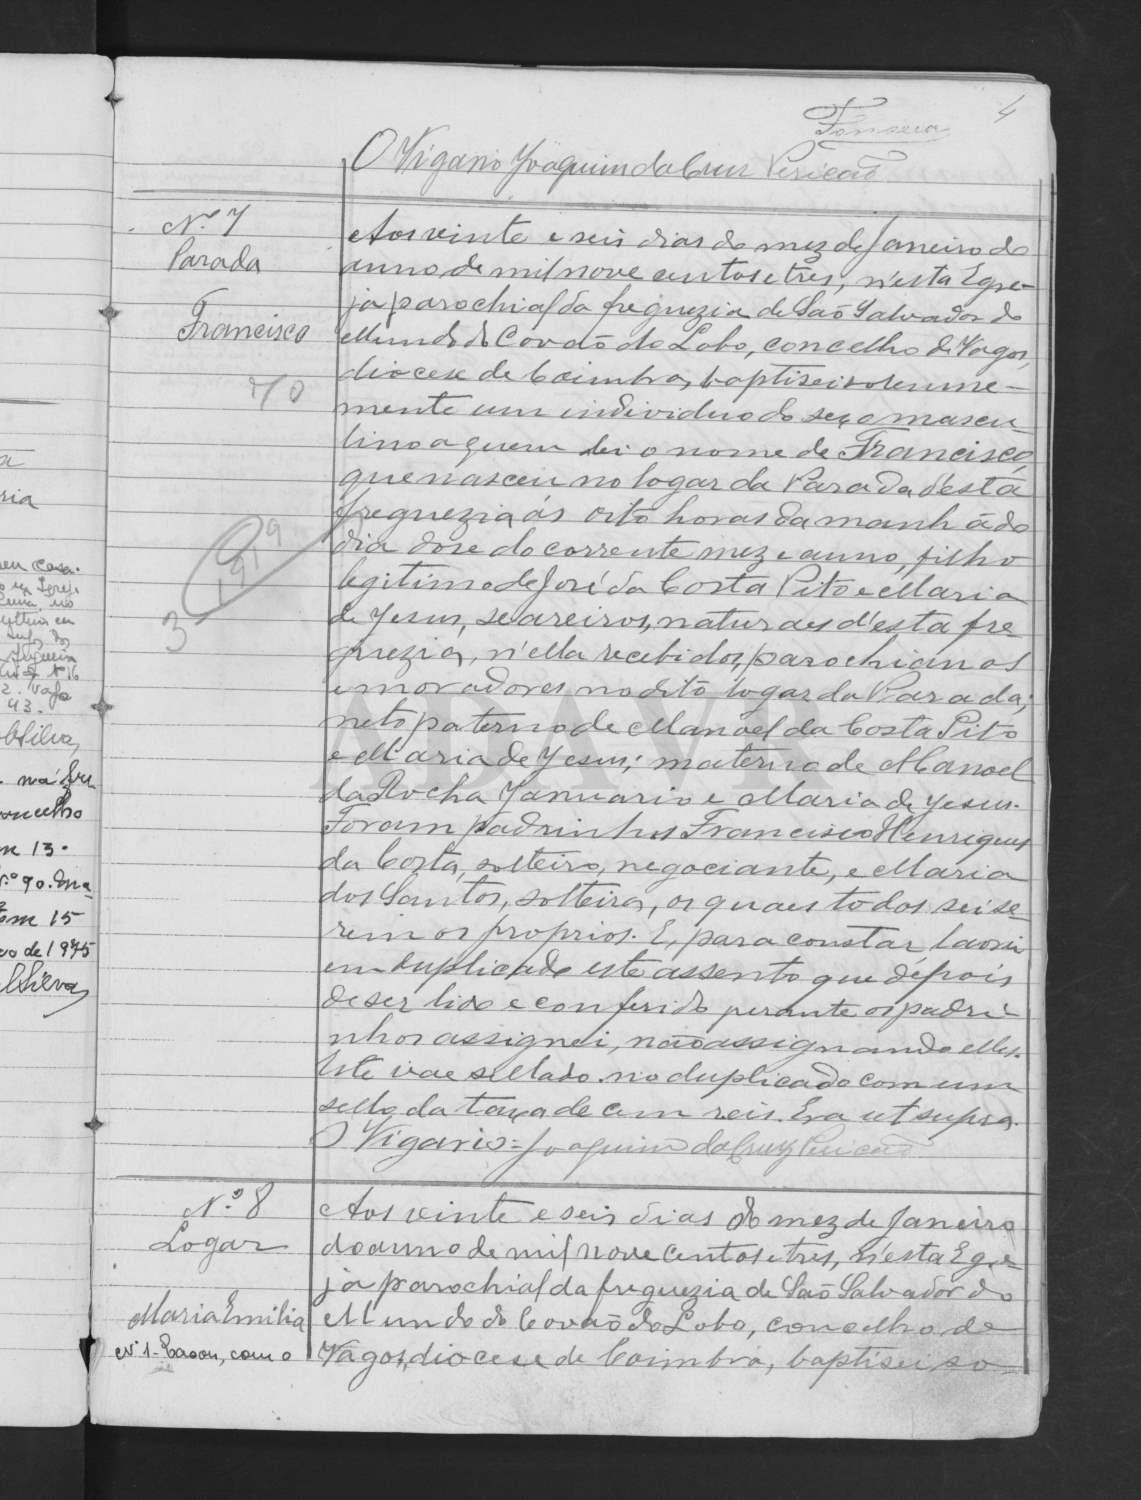 4
Fonseca
O Vigario Joaquim da Cruz Pericão
Nº 7
Parada
Francisco
70
1919
3
Aos vinte e seis dias do mez de Janeiro do
anno de mil nove centos e tres, n'esta Egre-
ja parochial da freguezia de São Salvador do
Mundo do Covão do Lobo, concelho de Vagos,
diocese de Coimbra, baptisei solemne-
mente um individuo do sexo mascu-
lino a quem dei o nome de Francisco,
que nasceu no logar da Parada d'esta
freguezia ás oito horas da manhã do
dia doze do corrente mez e anno, filho
legitimo de José da Costa Pito e Maria
de Jesus, seareiros, naturaes d'esta fre
guezia, n'ella recebidos, parochianos
e moradores no dito logar da Parada;
neto paterno de Manoel da Costa Pito
e Maria de Jesus; materno de Manoel
da Rocha Januario e Maria de Jesus.
Foram padrinhos Francisco Henriques
da Costa, solteiro, negociante, e Maria
dos Santos, solteira, os quaes todos sei se-
rem os proprios. E, para constar lavrei
em duplicado este assento que depois
de ser lido e conferido perante os padri-
nhos assignei, não assignando elles.
Este vae sellado no duplicado com um
sello da taxa de cem reis. Era ut supra.
O Vigario = Joaquim da Cruz Pericão
Nº 8
Logar
Maria Emilia
Nº 1 - Casou, com o
Aos vinte e seis dias do mez de Janeiro
do anno de mil nove centos e tres, n'esta Egre-
ja parochial da freguezia de São Salvador do
Mundo do Covão do Lobo, concelho de
Vagos, diocese de Coimbra, baptisei so-
ria
43.
Silva,
concelho
13.
Nº 90.
em 15
de 1975
Silva
ADAVR